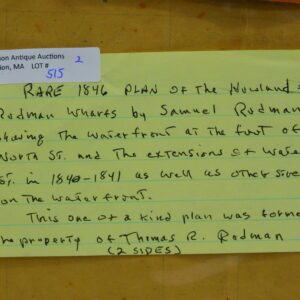 on Antique Auctions
ion, MA LOT #
515
2
RARE 1846 PLAN OF the Howland &
Rodman Wharfs by Samuel Rodman
showing the waterfront at the foot of
North St. and the extensions of Water
St. in 1840-1841 as well as other
on the waterfront.
This one of a kind plan was forme
the property of Thomas R. Rodman
(2 SIDES)